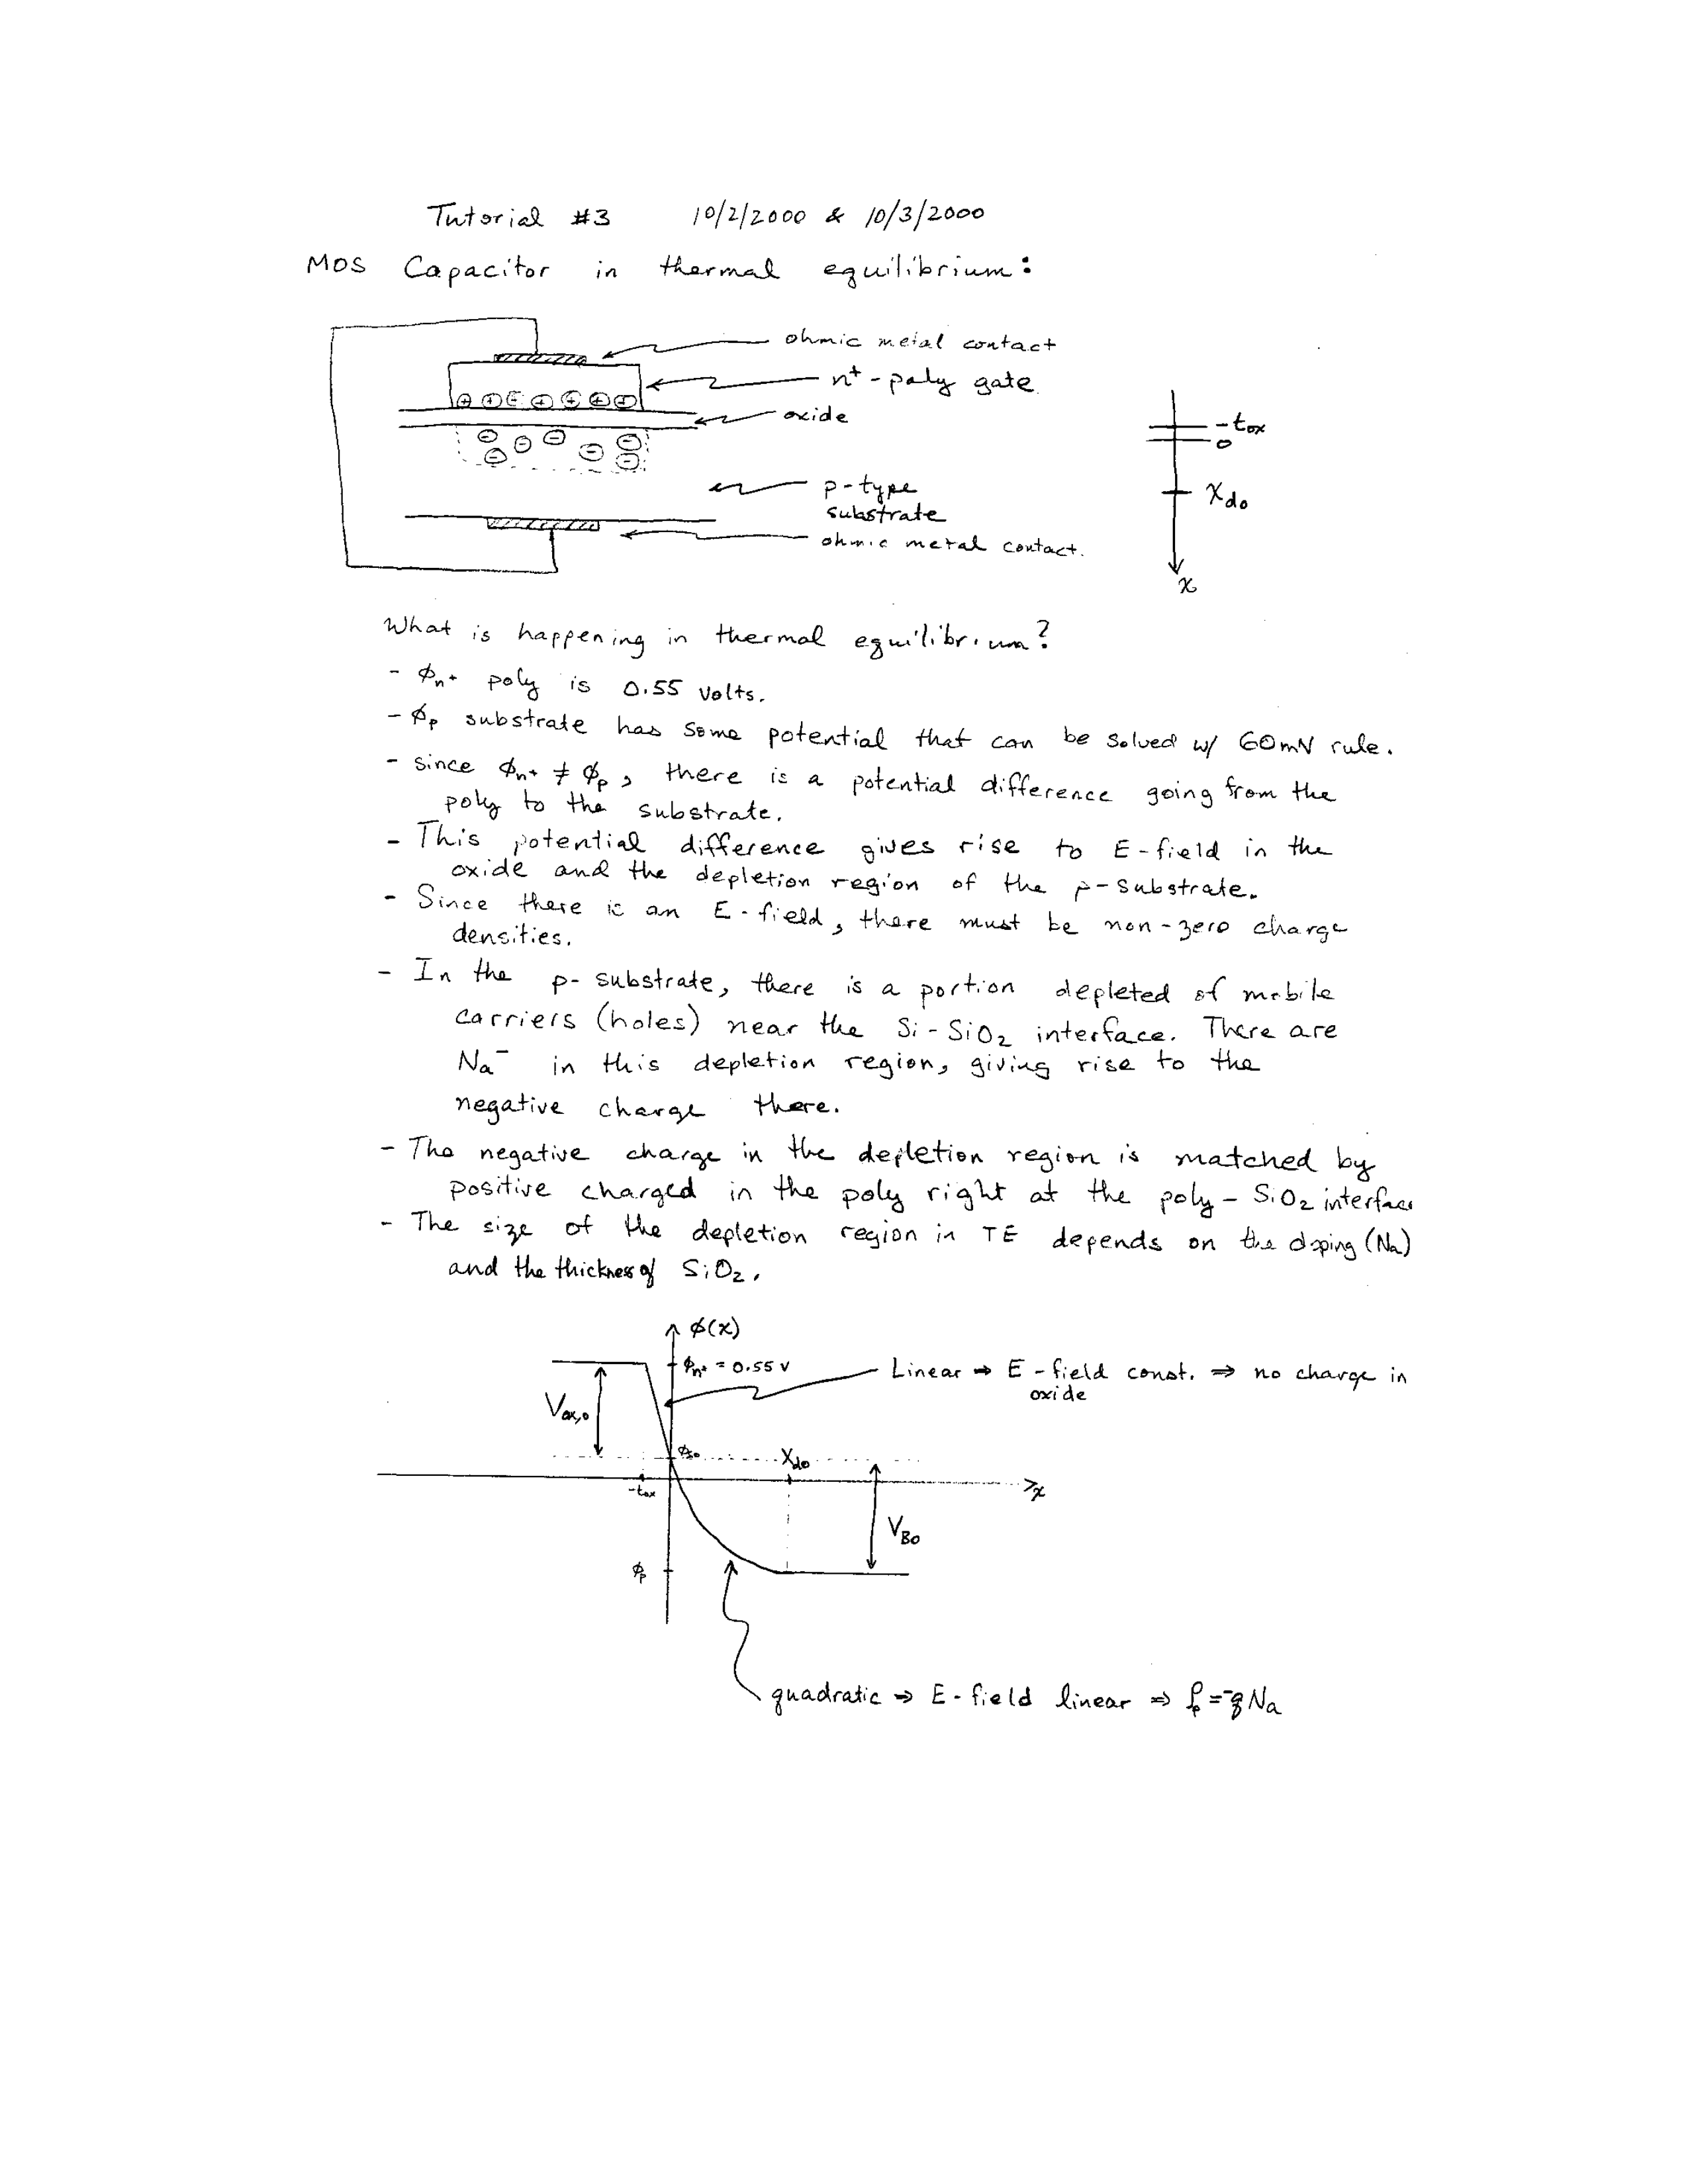 Tutorial #3 10/2/2000 & 10/3/2000
MOS Capacitor in thermal equilibrium:
ohmic metal contact
n⁺-poly gate
oxide
p-type
substrate
ohmic metal contact.
-tox
0
Xdo
x
What is happening in thermal equilibrium?
- ϕn+ poly is 0.55 volts.
- ϕp substrate has some potential that can be solved w/ 60mV rule.
- since ϕn+ ≠ ϕp, there is a potential difference going from the
poly to the substrate.
- This potential difference gives rise to E-field in the
oxide and the depletion region of the p-substrate.
- Since there is an E-field, there must be non-zero charge
densities.
- In the p-substrate, there is a portion depleted of mobile
carriers (holes) near the Si-SiO₂ interface. There are
Na⁻ in this depletion region, giving rise to the
negative charge there.
- The negative charge in the depletion region is matched by
positive charged in the poly right at the poly-SiO₂ interface
- The size of the depletion region in TE depends on the doping (Na)
and the thickness of SiO₂.
ϕ(x)
ϕn+ = 0.55 V
Linear ⇒ E-field const. ⇒ no charge in
oxide
Vox,o
ϕo
Xdo
-tox
x
VBo
ϕp
quadratic ⇒ E-field linear ⇒ ρp = -qNa